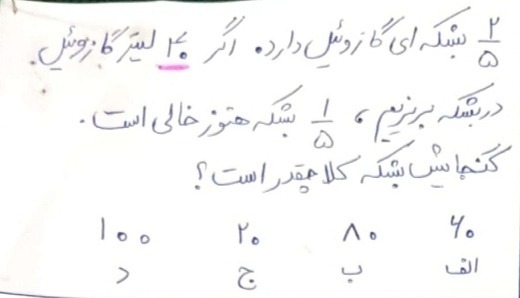 ۲/۵ بشکه ای گازوئیل دارد. اگر ۴۰ لیتر گازوئیل
در بشکه بریزیم، ۱/۵ بشکه هنوز خالی است.
گنجایش بشکه کلا چقدر است؟
۶۰ ۸۰ ۲۰ ۱۰۰
الف ب ج د